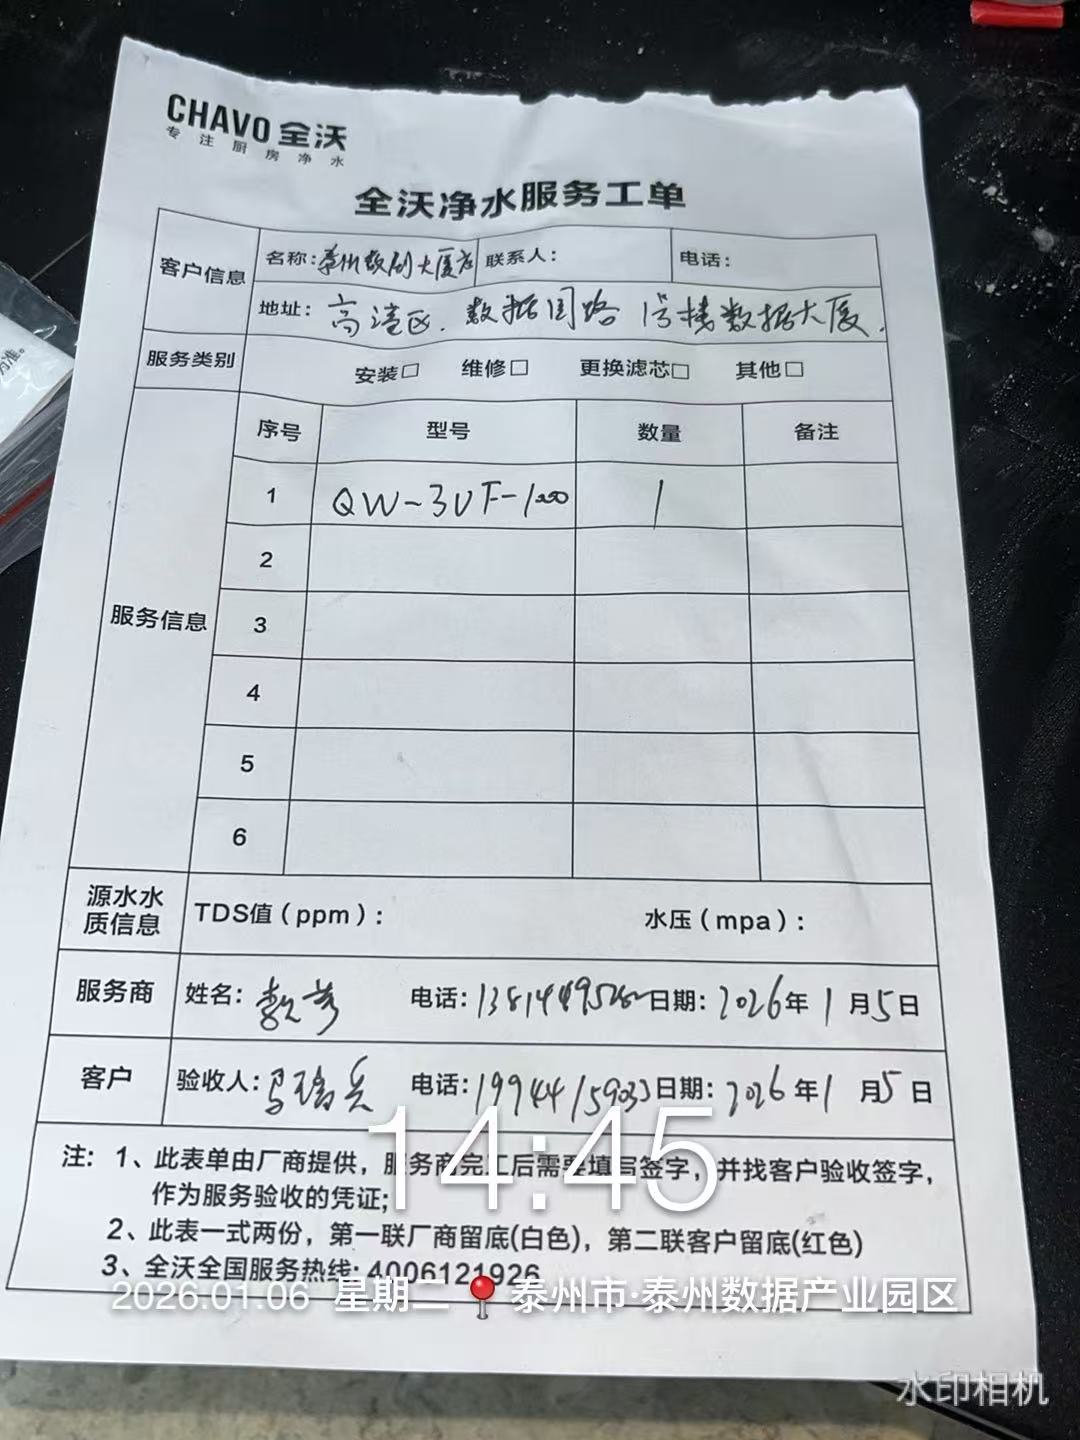 CHAVO 全沃
专注厨房净水
全沃净水服务工单
客户信息 名称：泰州数创大厦店 联系人： 电话：
地址：高港区、数据园路 号楼数据大厦.
服务类别 安装□ 维修□ 更换滤芯□ 其他□
服务信息
序号 型号 数量 备注
1 QW-3UF-1000 1
2
3
4
5
6
源水水质信息 TDS值（ppm）： 水压（mpa）：
服务商 姓名： 电话： 日期：2026年1月5日
客户 验收人：马瑞兵 电话：19944159033 日期：2026年1月5日
注：1、此表单由厂商提供，服务商完工后需要填写签字，并找客户验收签字，
作为服务验收的凭证；
2、此表一式两份，第一联厂商留底(白色)，第二联客户留底(红色)
3、全沃全国服务热线：4006121926
14:45
2026.01.06 星期二 泰州市·泰州数据产业园区
水印相机
为准。